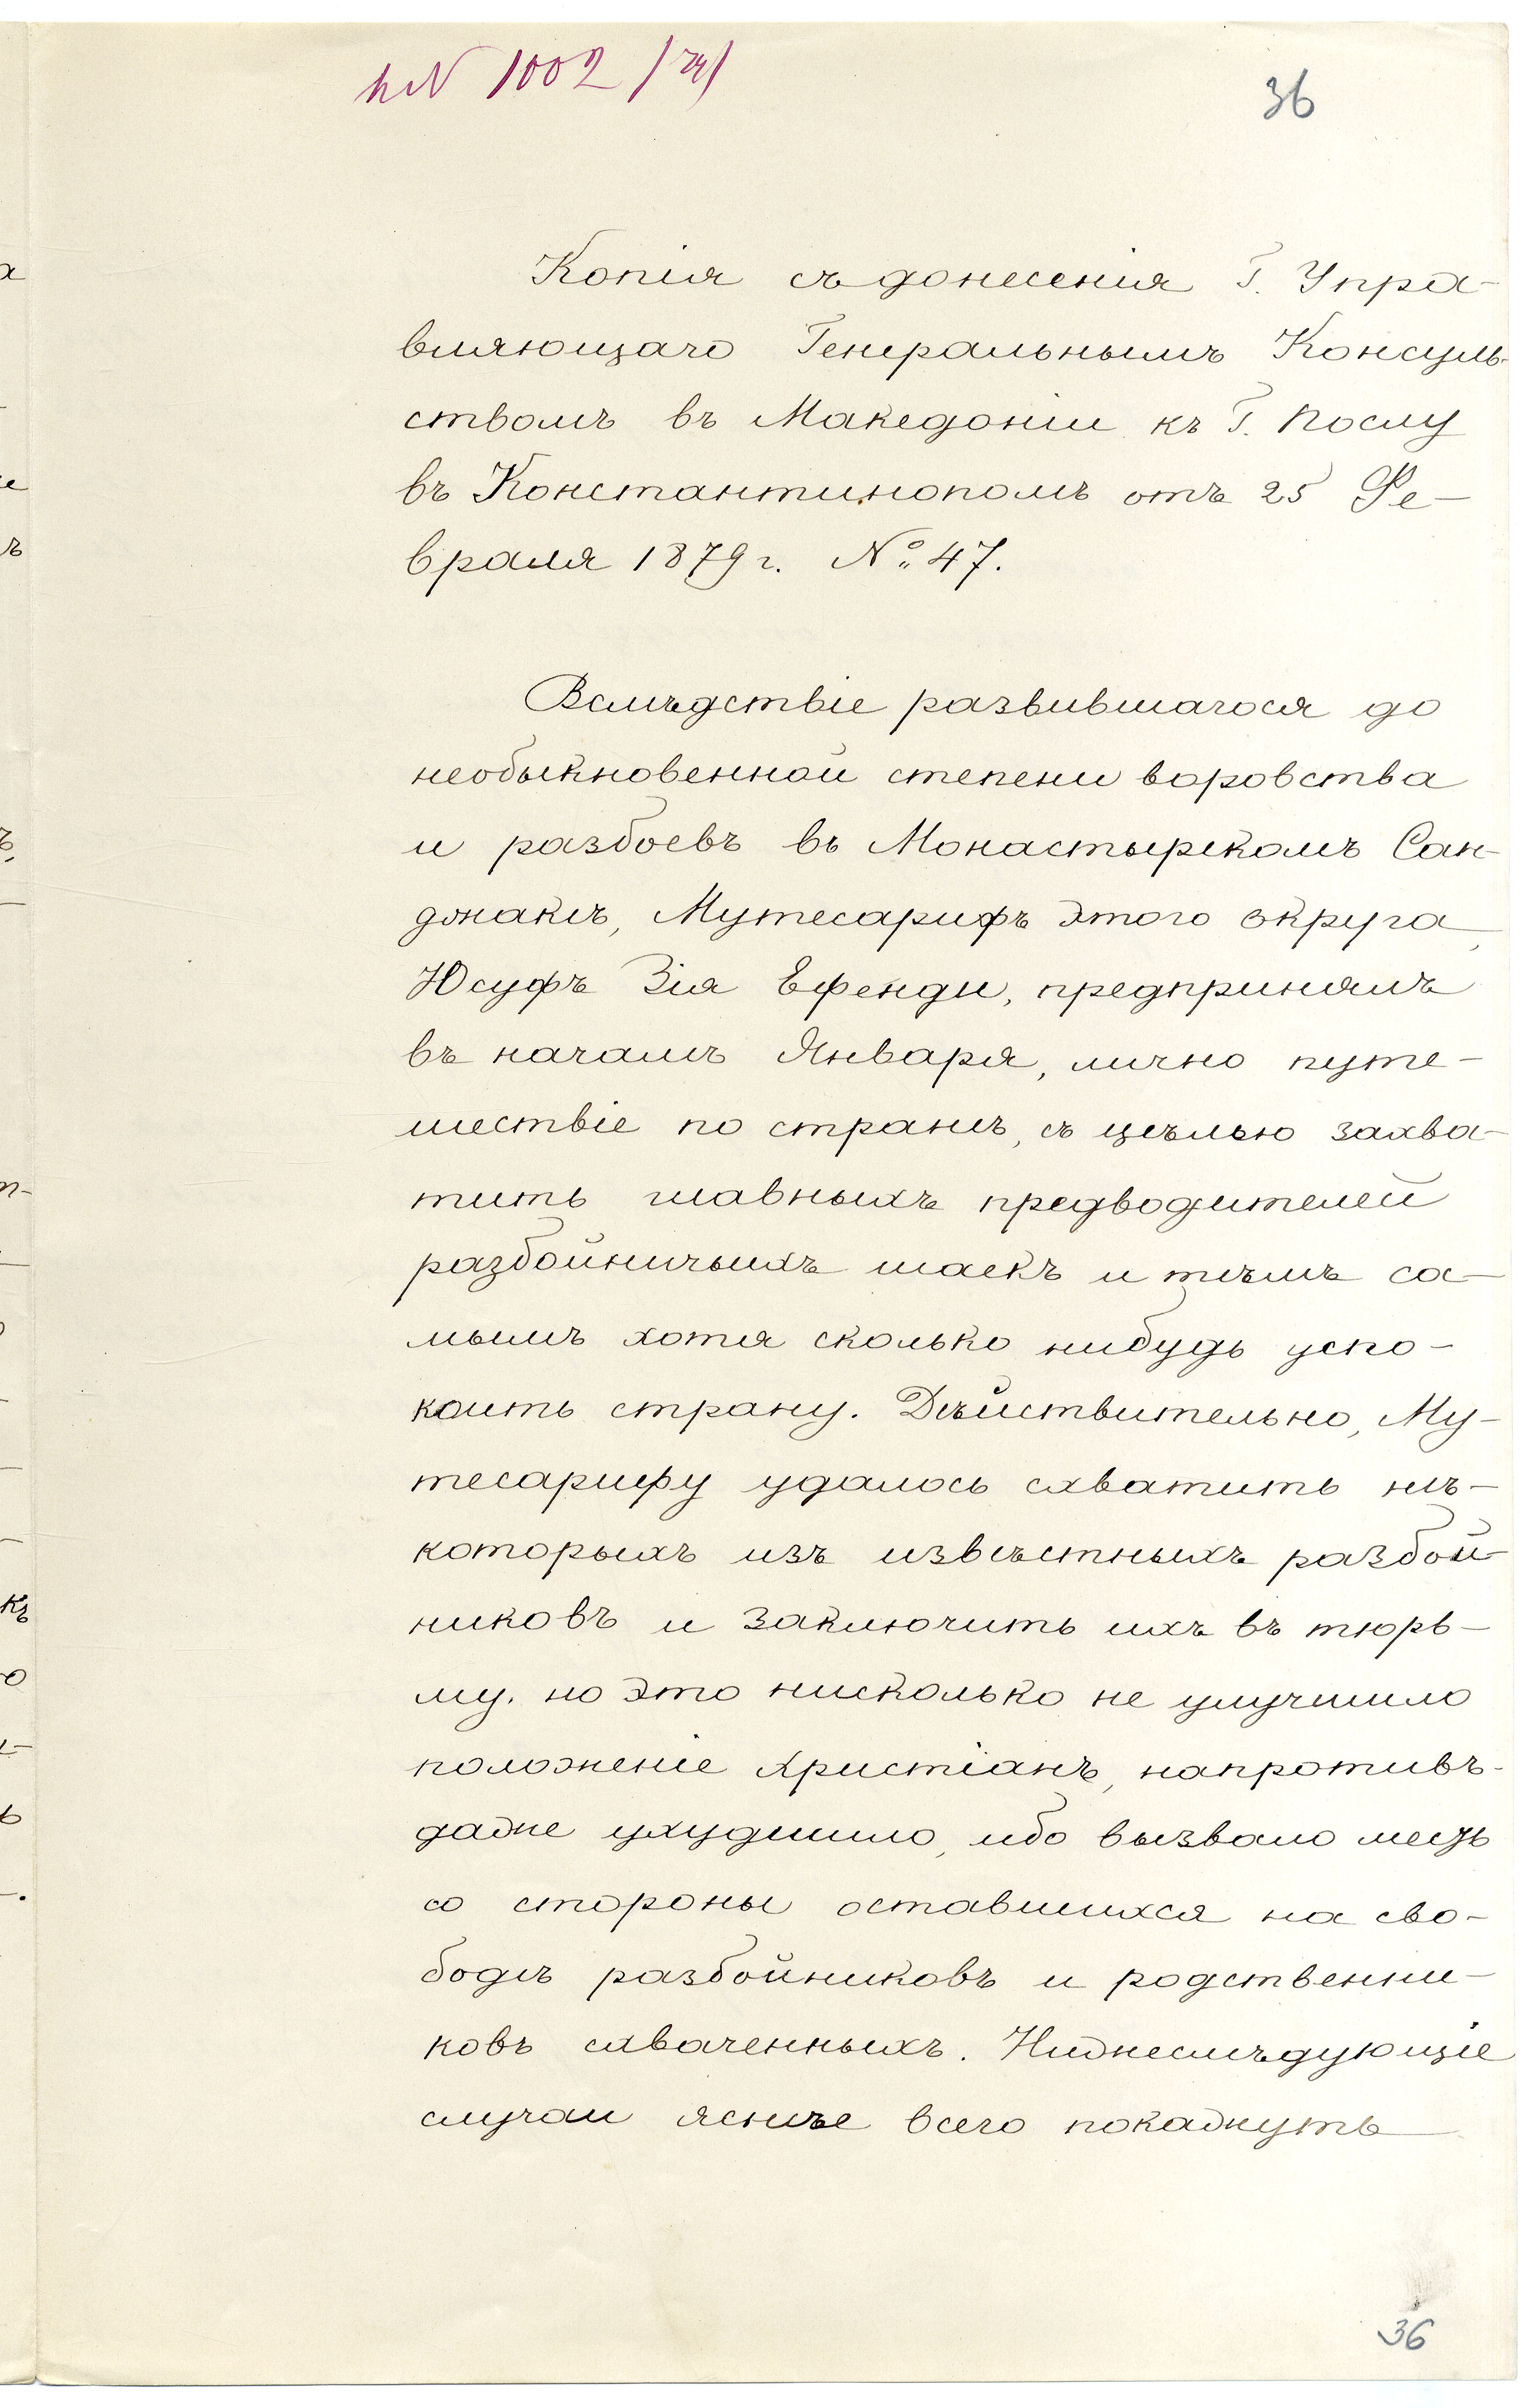 кN 1002 /79/
36
Копія съ донесенія Г. Упра-
вляющаго Генеральнымъ Консуль-
ствомъ въ Македоніи къ Г. Послу
въ Константинополѣ отъ 25 Фе-
враля 1879 г. № 47.
Вслѣдствіе развившагося до
необыкновенной степени воровства
и разбоевъ въ Монастырскомъ Сан-
джакѣ, Мутесарифъ этого округа,
Юсуфъ Зія Ефенди, предпринялъ
въ началѣ Января, лично путе-
шествіе по странѣ, съ цѣлью захва-
тить главныхъ предводителей
разбойничьихъ шаекъ и тѣмъ са-
мымъ хотя сколько нибудь успо-
коить страну. Дѣйствительно, Му-
тесарифу удалось схватить нѣ-
которыхъ изъ извѣстныхъ разбой-
никовъ и заключить ихъ въ тюрь-
му. но это нисколько не улучшило
положеніе Христіанъ, напротивъ-
даже ухудшило, ибо вызвало месть
со стороны оставшихся на сво-
бодѣ разбойниковъ и родственни-
ковъ схваченныхъ. Нижеслѣдующіе
случаи яснѣе всего покажутъ
36